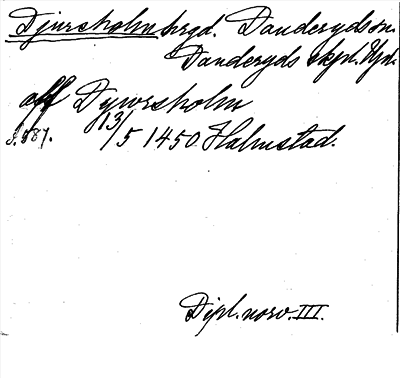 Djursholm hrgd. Danderyds sn.
Danderyds skpl. Upl.
aff Dywrsholm
s. 587. 13/5 1450. Halmstad.
Dipl. norv. III.